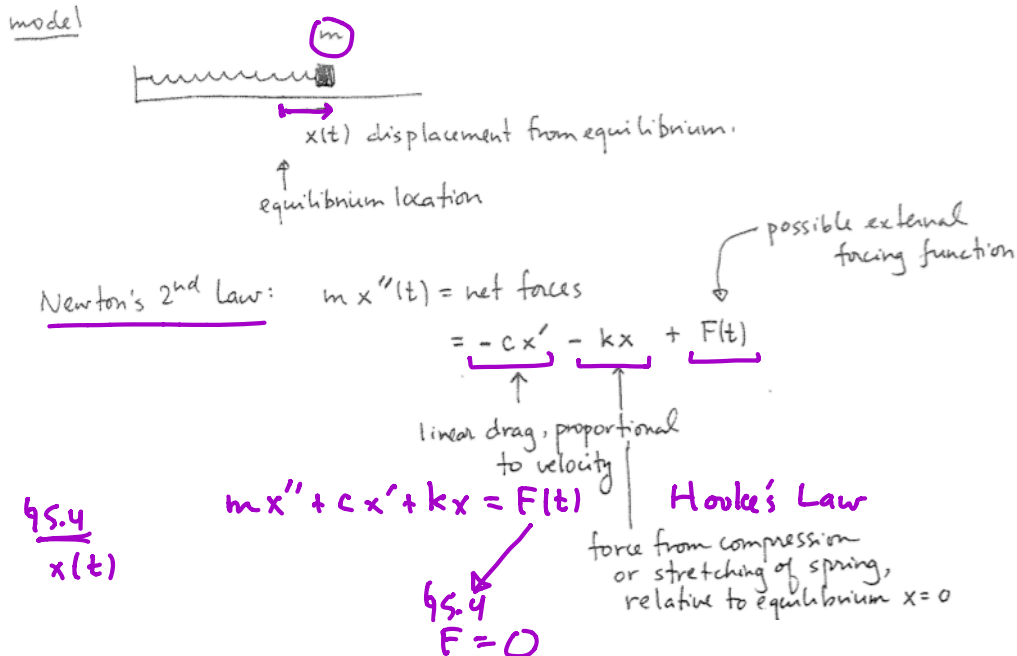 model
m
x(t) displacement from equilibrium.
equilibrium location
possible external
forcing function
Newton's 2nd Law: m x''(t) = net forces
= - c x' - kx + F(t)
linear drag, proportional
to velocity
m x'' + c x' + k x = F(t) Hooke's Law
§5.4
x(t)
force from compression
or stretching of spring,
relative to equilibrium x=0
§5.4
F = 0